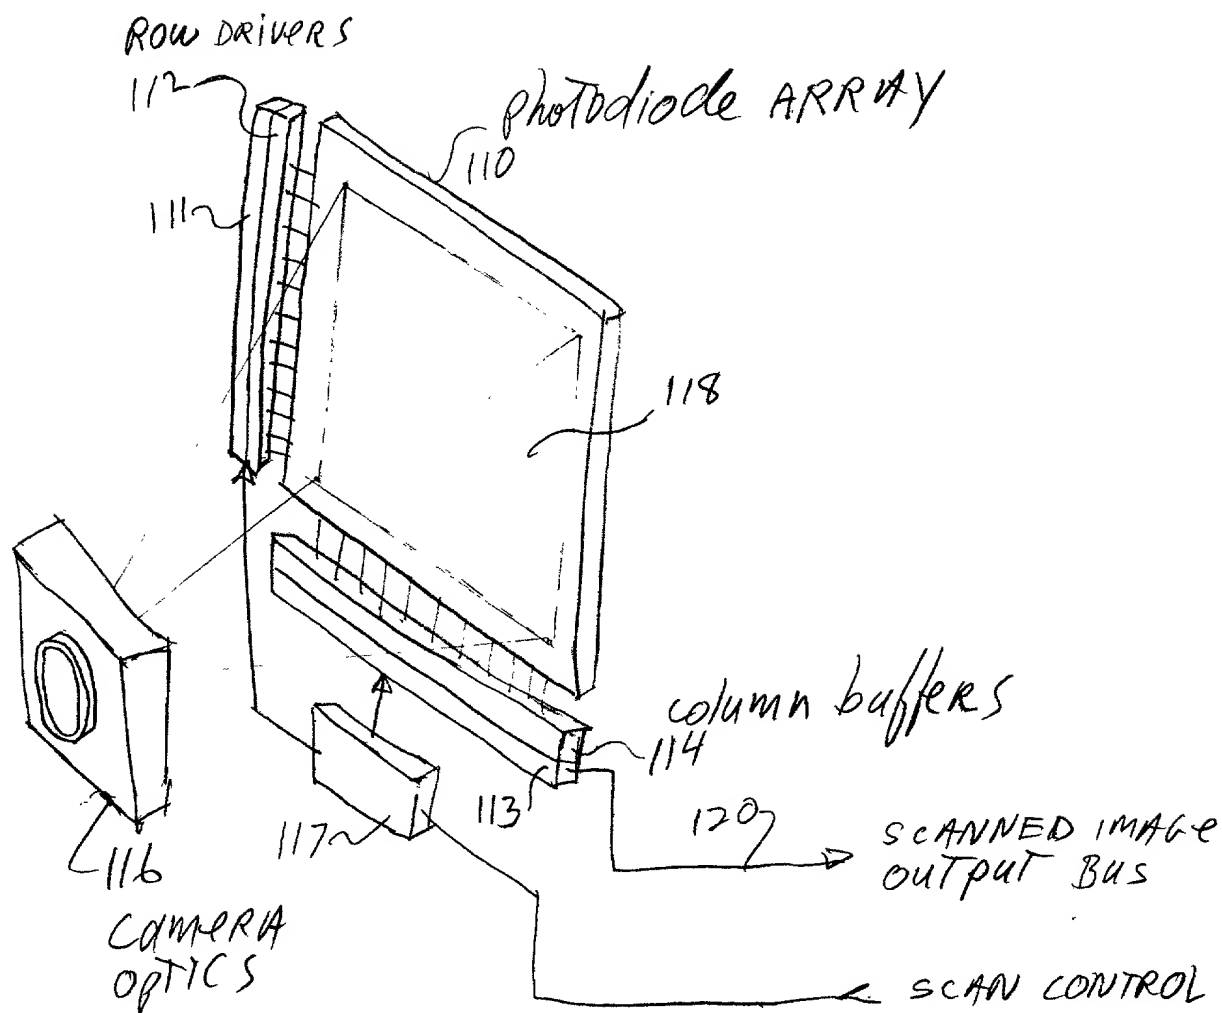 ROW DRIVERS
112
photodiode ARRAY
110
111
118
column buffers
114
113
117
120
116
SCANNED IMAGE
OUTPUT BUS
CAMERA
OPTICS
SCAN CONTROL